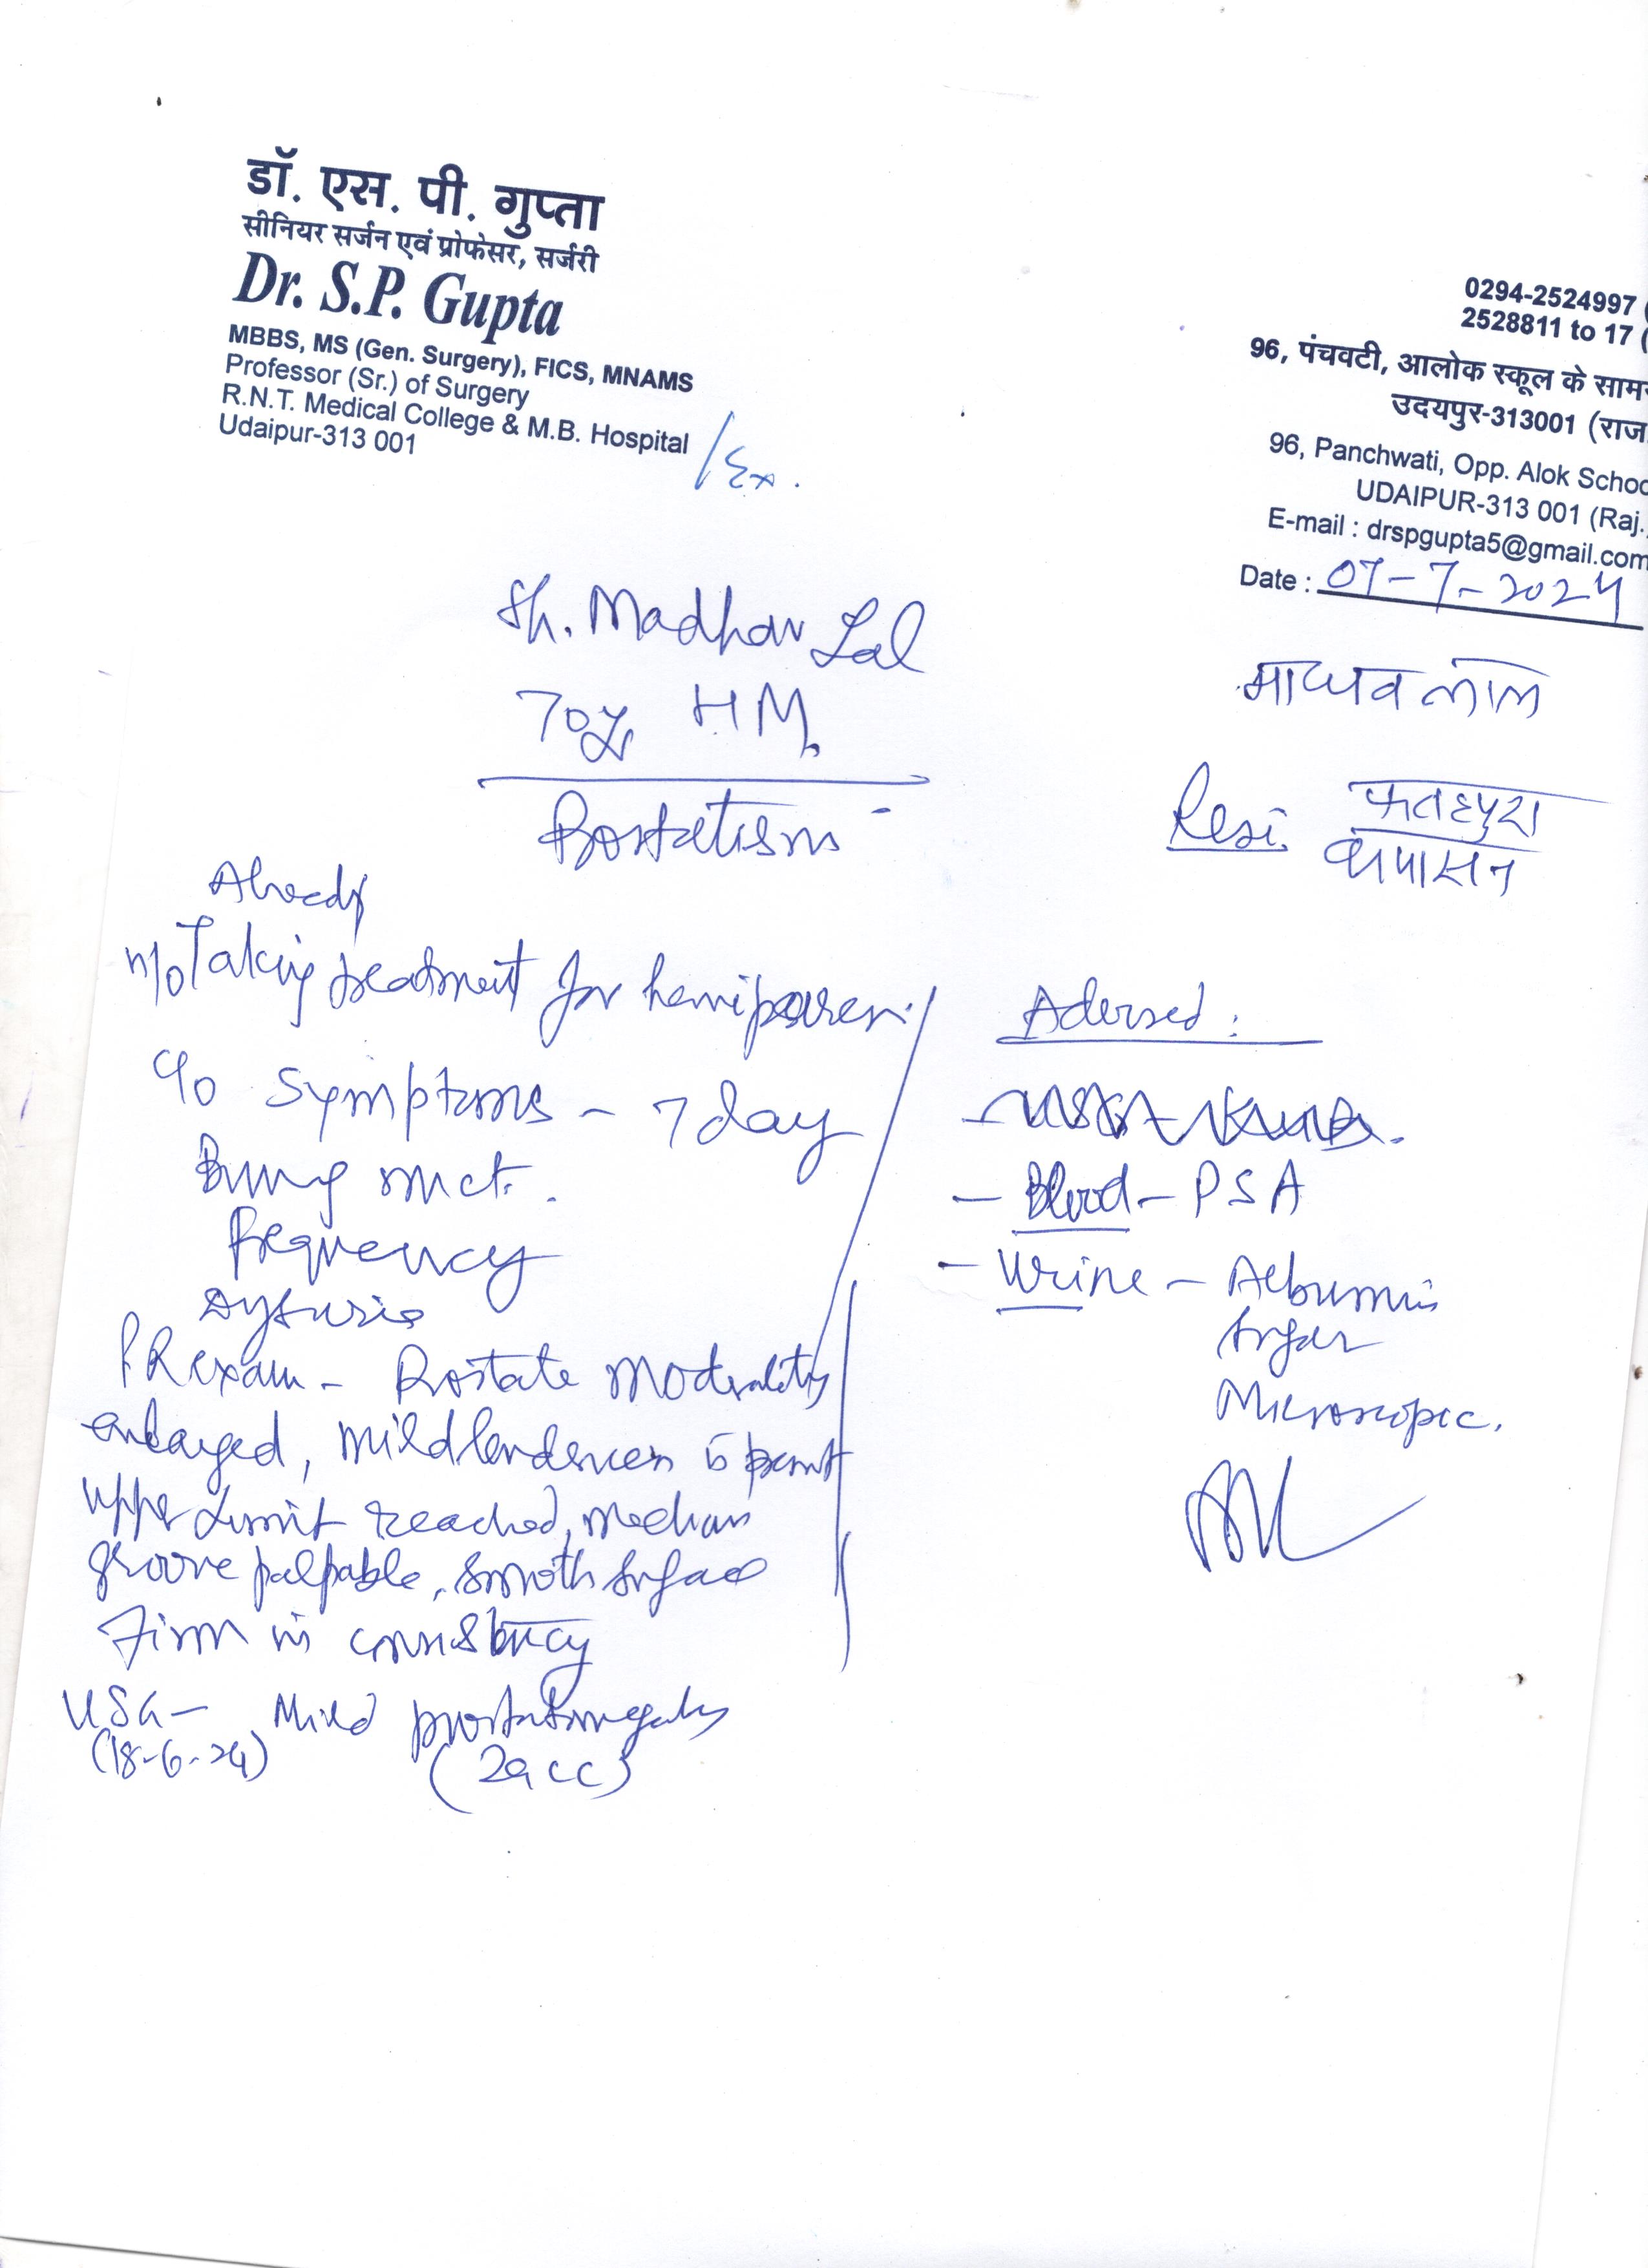 डॉ. एस. पी. गुप्ता
सीनियर सर्जन एवं प्रोफेसर, सर्जरी
Dr. S.P. Gupta
MBBS, MS (Gen. Surgery), FICS, MNAMS
Professor (Sr.) of Surgery
R.N.T. Medical College & M.B. Hospital
Udaipur-313 001
/Ex.
0294-2524997 (
2528811 to 17 (
96, पंचवटी, आलोक स्कूल के साम
उदयपुर-313001 (राज.
96, Panchwati, Opp. Alok Schoo
UDAIPUR-313 001 (Raj.
E-mail : drspgupta5@gmail.com
Date : 07-7-2024
Sh. Madhav Lal
70y HM
माधव लाल
Prostatism
Resi. फतहपुरा
कपासन
Already
H/o Taking treatment for
C/o Symptoms - 7 day
Burning mict.
Frequency
Dysuria
PR exam - Prostate moderately
enlarged, mild present
upper limit reached, median
groove palpable, smooth surface
Firm in consistency
USG - Mild prostatomegaly
(18-6-24) (29cc)
Advised :
- Blood - PSA
- Urine - Albumin
Sugar
Microscopic.